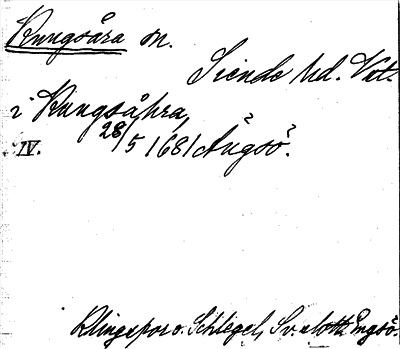 Kungsåra sn.
Siende hd. Vstm.
i Kungsåhra,
IV. 28/5 1681 Ängsö.
Klingspor o. Schlegel, Sv. slott: Ängsö.